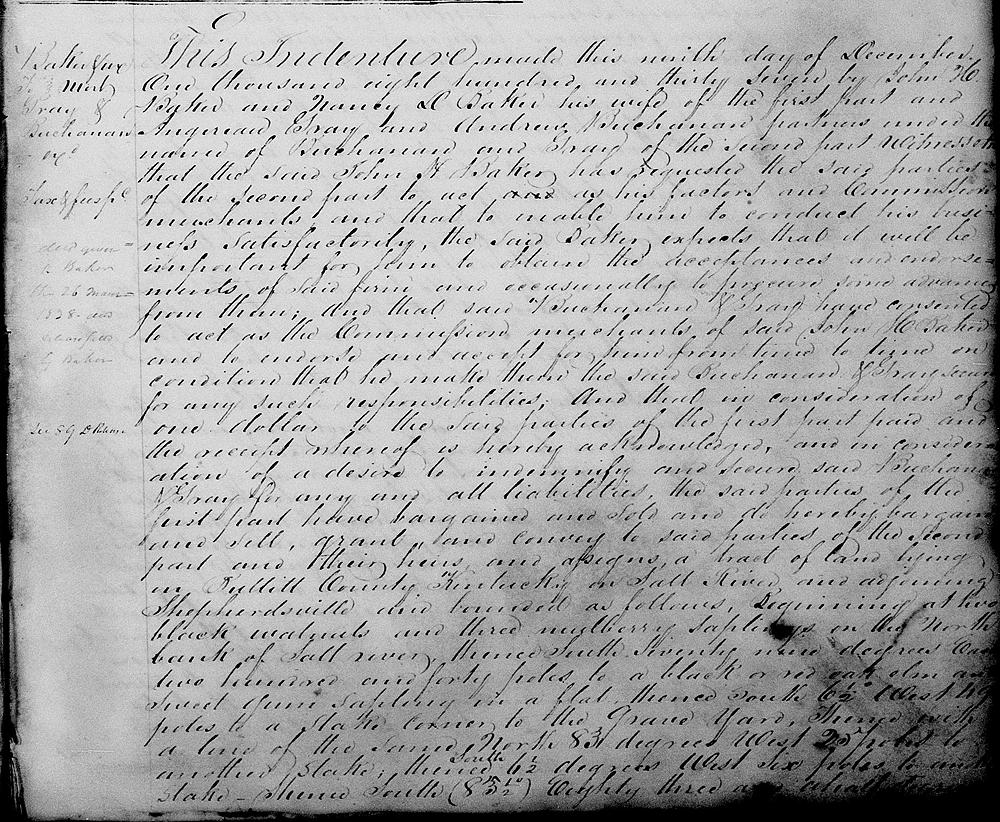 Baker &ux
To } Mort
Gray &
Buchanan
exd
Tax & fees pd
deed given
to Baker
26
1838 and
to Baker
See 89 D Release
This Indenture made this ninth day of December
One thousand eight hundred and thirty seven by John H
Baker and Nancy D Baker his wife of the first part and
Gray and Andrew Buchanan partners under the
name of Buchanan and Gray of the second part Witnesseth
that the said John H Baker has requested the said parties
of the second part to act and as his factors and Commission
merchants and that to enable him to conduct his busi-
ness satisfactorily, the said Baker expects that it will be
important for him to obtain the acceptances and endorse-
ments of said firm and occasionally to procure some advances
from them; And that said Buchanan & Gray have consented
to act as the Commission merchants of said John H Baker
and to endorse and accept for him from time to time on
condition that he make them the said Buchanan & Gray secure
for any such responsibilities; And that in consideration of
one dollar to the said parties of the first part paid and
the receipt whereof is hereby acknowledged, and in consider-
ation of a desire to indemnify and secure said Buchanan
& Gray for any and all liabilities, the said parties of the
first part have bargained and sold and do hereby bargain
and sell, grant, and convey to said parties of the second
part and their heirs and assigns, a tract of land lying
in Bullitt County Kentucky on Salt River and adjoining
Shepherdsville and bounded as follows, Beginning at two
black walnuts and three mulberry saplings on the North
bank of Salt river, thence South Seventy nine degrees East
two hundred and forty poles to a black or red oak elm and
sweet gum sapling in a flat thence South 6½ West
poles to a Stake corner to the Grave Yard, Thence with
a line of the same North 83 degrees West 25 poles to
another Stake; thence South 6½ degrees West six poles to another
Stake - Thence South (83½°) Eighty three and a half